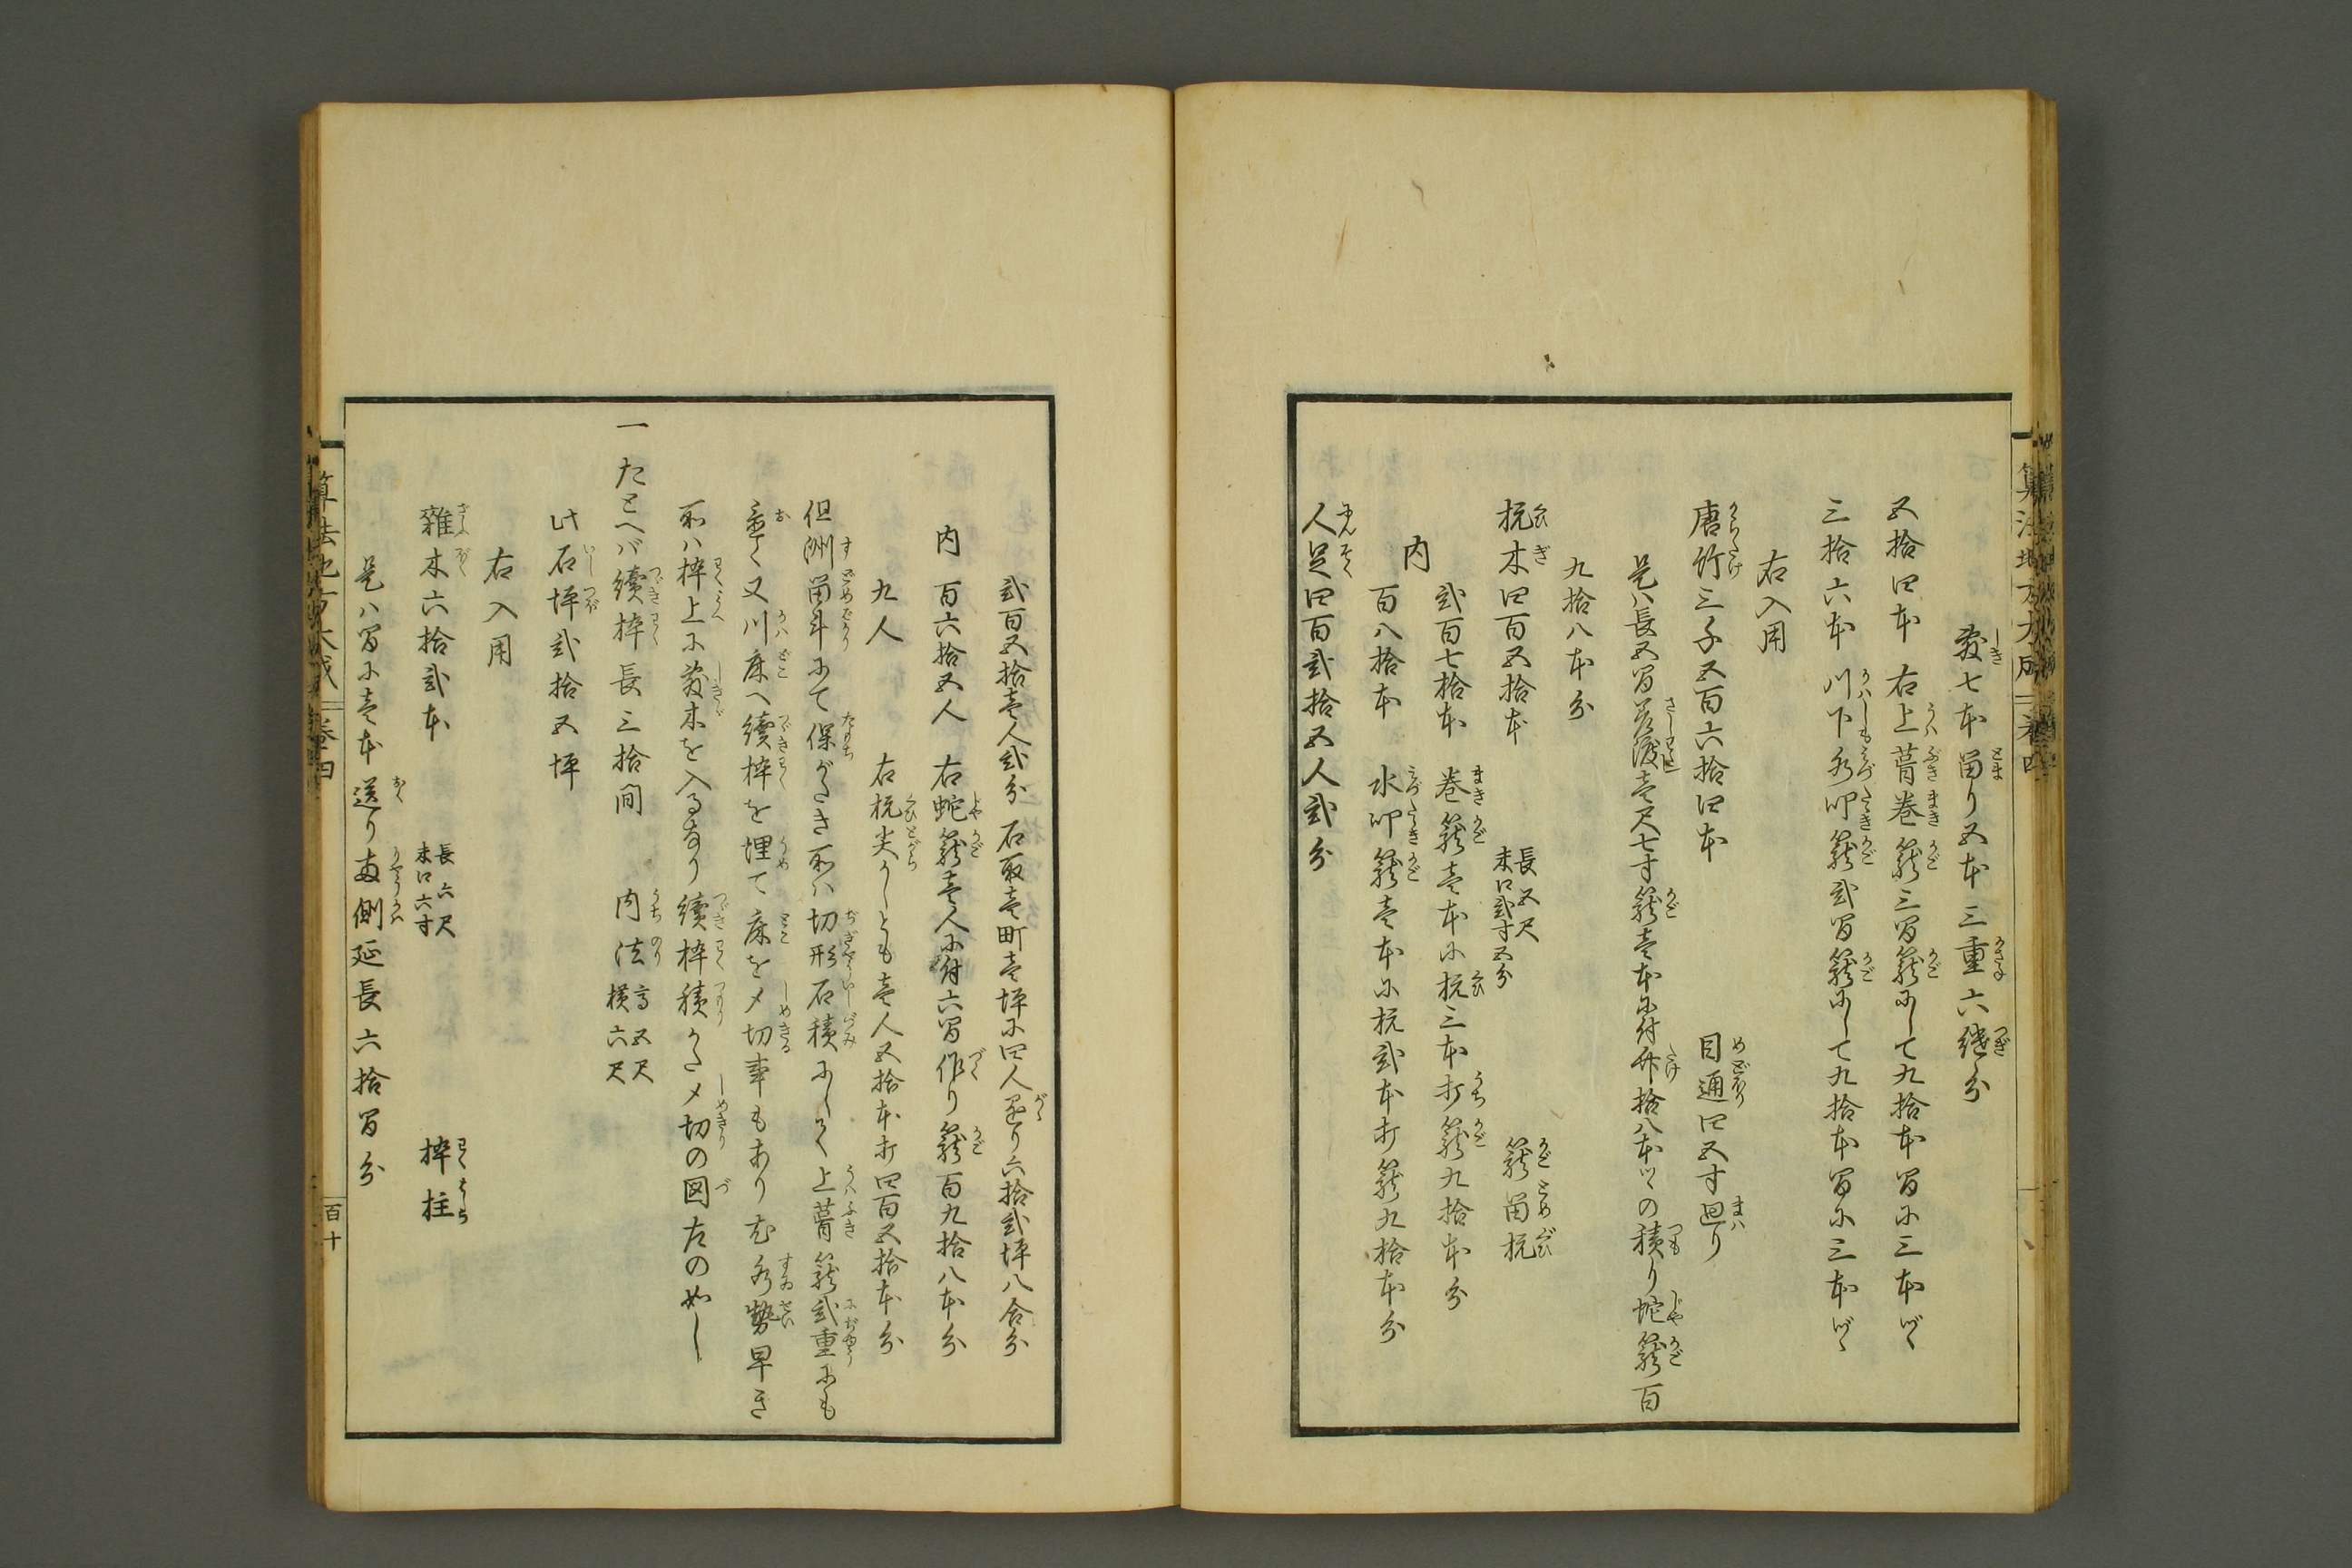 敷七本留り五本三重六継分
五拾四本　右上葺巻籠三間籠にして九拾本間に三本ツヽ
三拾六本　川下水叩籠弐間籠にして九拾本間に三本ツヽ
右入用
唐竹三千五百六拾四本　目通四五寸廻り
是ハ長五間差渡壱尺七寸籠壱本に付竹拾八本ツヽの積り蛇籠百
九拾八本分
杭木四百五拾本　長五尺　末口弐寸五分　籠留杭
内
弐百七拾本　巻籠壱本に杭三本打籠九拾本分
百八拾本　水叩籠壱本に杭弐本打籠九拾本分
人足四百弐拾五人弐分
弐百五拾壱人弐分　石取壱町壱坪に四人掛り六拾弐坪八合分
内　百六拾五人　右蛇籠壱人に付六間作り籠百九拾八本分
九人　右杭尖らしとも壱人五拾本打四百五拾本分
但洲留斗にて保がたき所ハ切形石積にしてよく上葺籠弐重にも
重く又川床へ續枠を埋て床を〆切事もあり尤水勢早き
所ハ枠上に敷木を入るなり續枠積かた〆切の図左の如し
一　たとへバ續枠長三拾間　内法　高五尺　横六尺
此石坪弐拾五坪
右入用
雑木六拾弐本　長六尺　末口六寸　枠柱
是ハ間に壱本送り両側延長六拾間分
算法地方大成　巻四
算法地方大成　巻四　百十